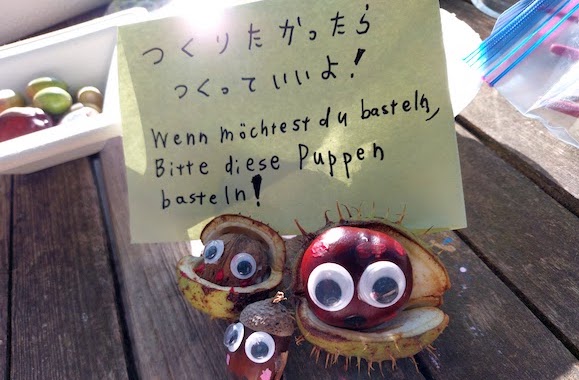 つくりたかったら
つくっていいよ!
Wenn möchtest du basteln,
Bitte diese Puppen
basteln!